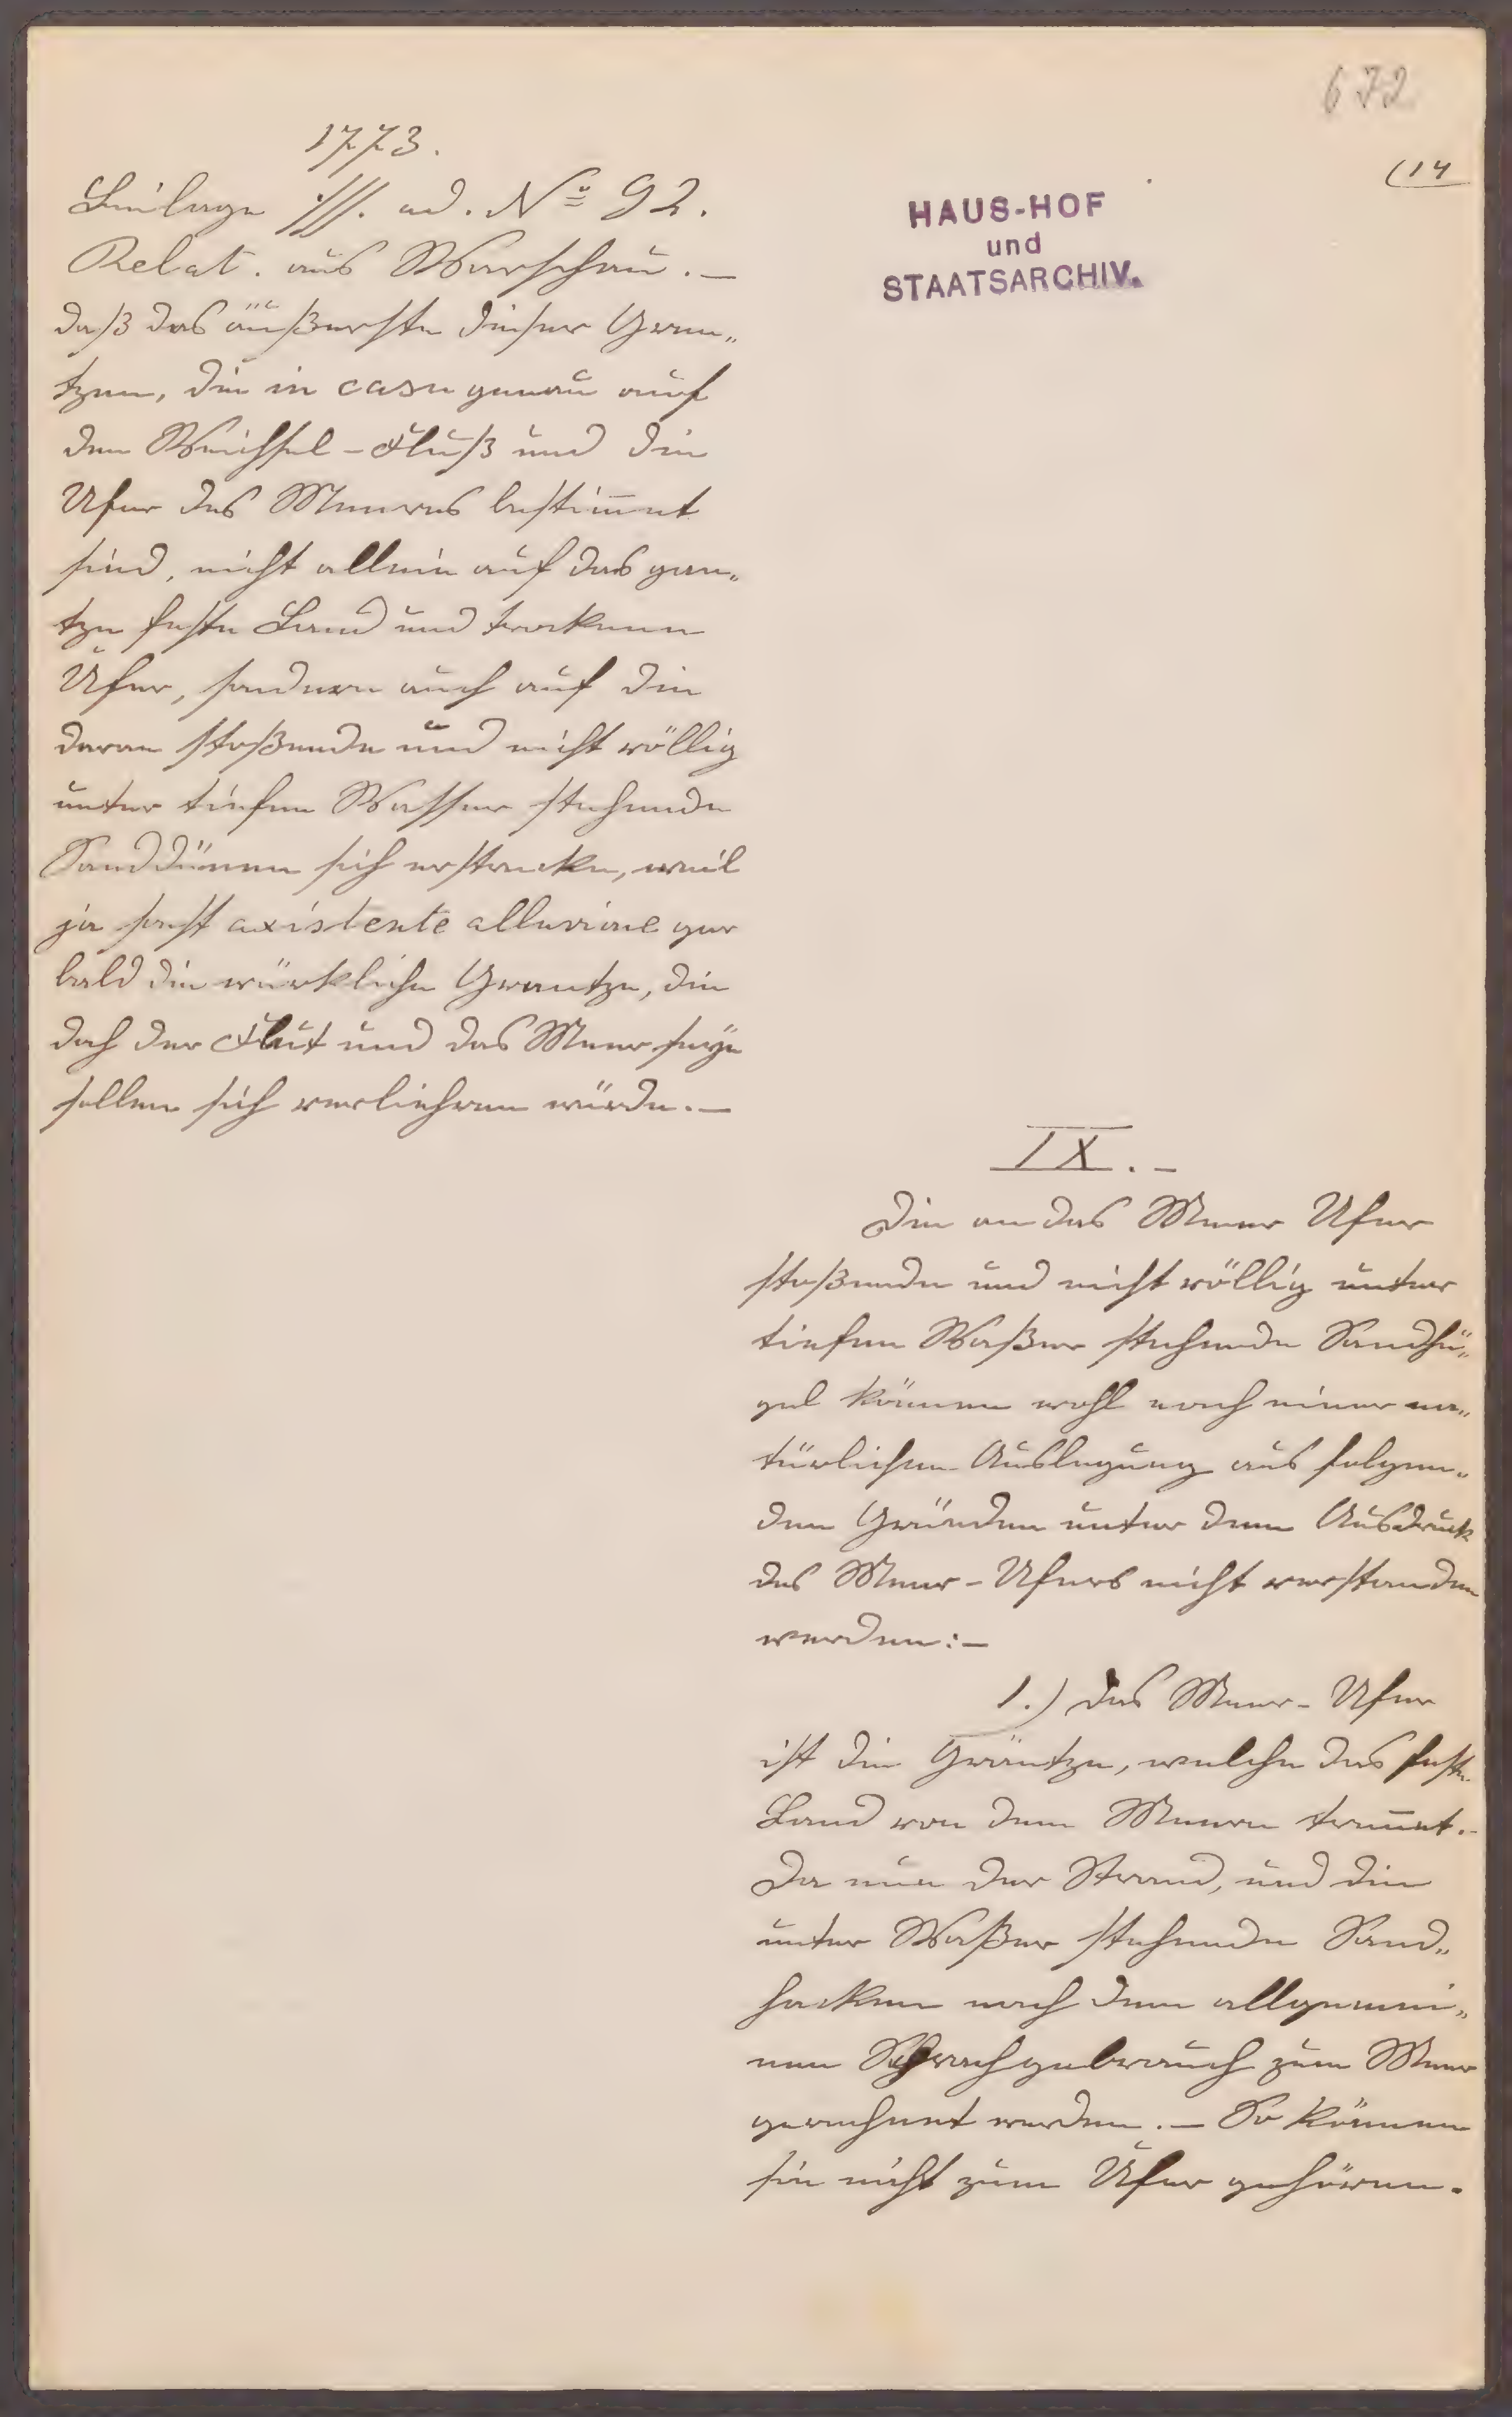 672
(14
1773.
Beilage ·///. ad. Nº 92.
Relat. aus Warschau.—
HAUS-HOF
und
STAATSARCHIV.
daß das äußerste dieser Gren„
tzen, die in casu genau auf
den Weichsel-Fluß und die
Ufer des Meeres bestim̅et
sind, nicht allein auf das gan„
tze feste Land und trockene
Ufer, sondern auch auf die
daran stoßende und nicht völlig
unter tiefen Wasser stehende
Sanddünen sich erstrecke, weil
ja sonst existente alluvione gar
bald die würkliche Grentze, die
doch der Fluß und das Meer seyn
sollen sich verliehren würde.—
IX.—
Die an das Meer Ufer
stoßende und nicht völlig unter
tiefen Waßer stehende Sandhü„
gel können wohl nach einer na„
türlichen Auslegung aus folgen„
den Gründen unter dem Ausdruck
des Meer-Ufers nicht verstanden
werden:—
1.) Das Meer-Ufer
ist die Gräntze, welche das feste
Land von dem Meere tren̅et.—
Da nun der Strand, und die
unter Waßer stehende Sand„
hacken nach dem allgemei„
nen Sprachgebrauch zum Meer
gerechnet werden.— So können
sie nicht zum Ufer gehören.